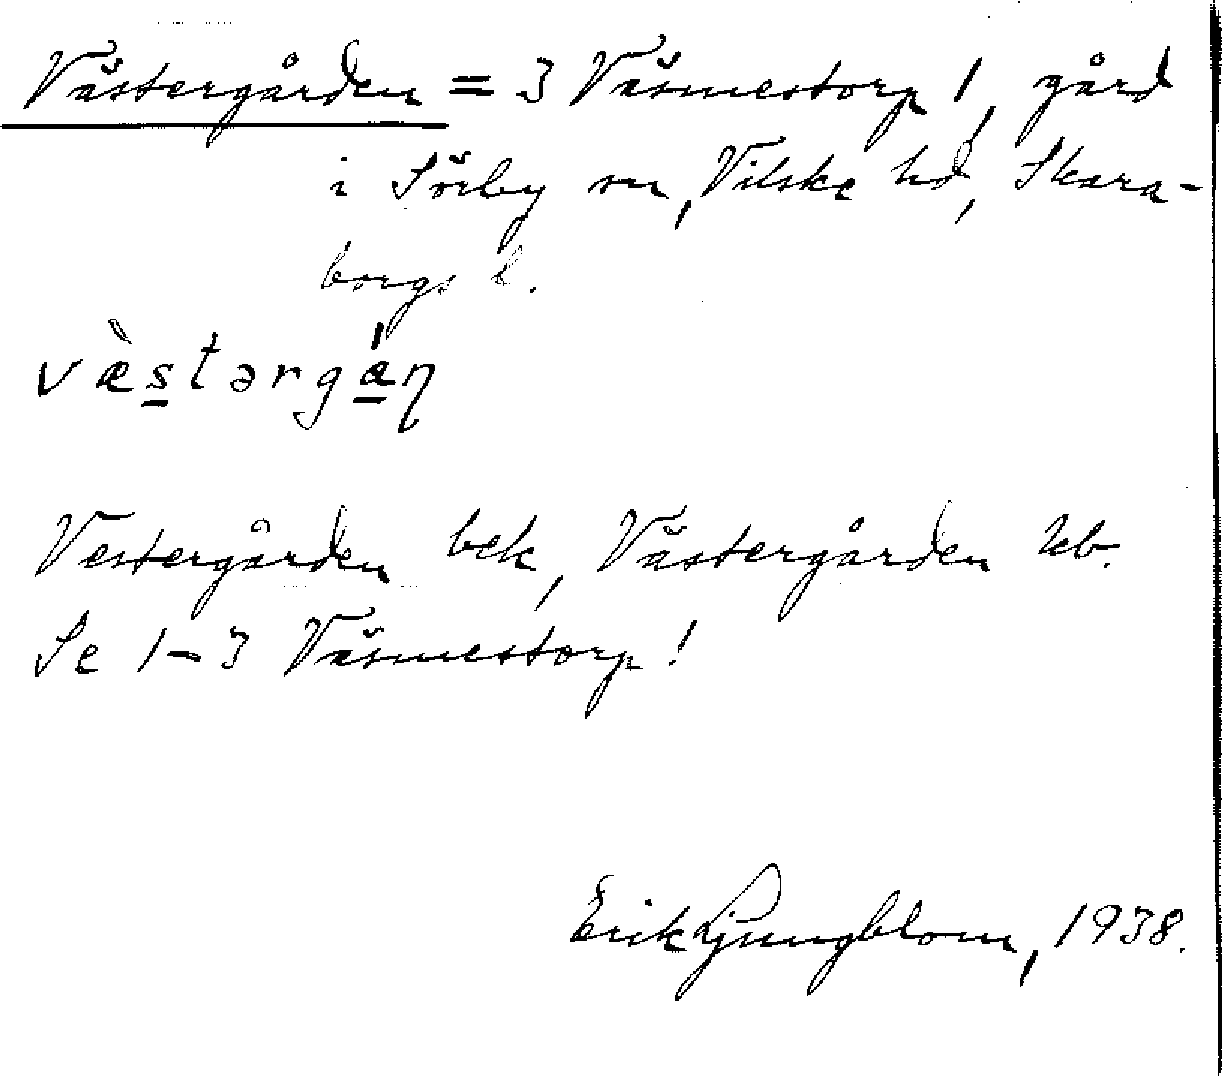 Västergården = 3 Väsmestorp 1, gård
i Sörby sn, Vilske hd, Skara-
borgs l.
væ̀stərgá̱ɳ
Vestergården bek, Västergården kb.
Se 1-3 Väsmestorp!
Erik Ljungblom, 1938.